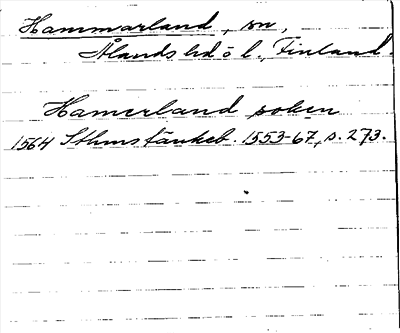 Hammarland, sn,
Ålands hd o l., Finland.
Hamerland soken
1564 Sthms tänkeb. 1553-67, s. 273.